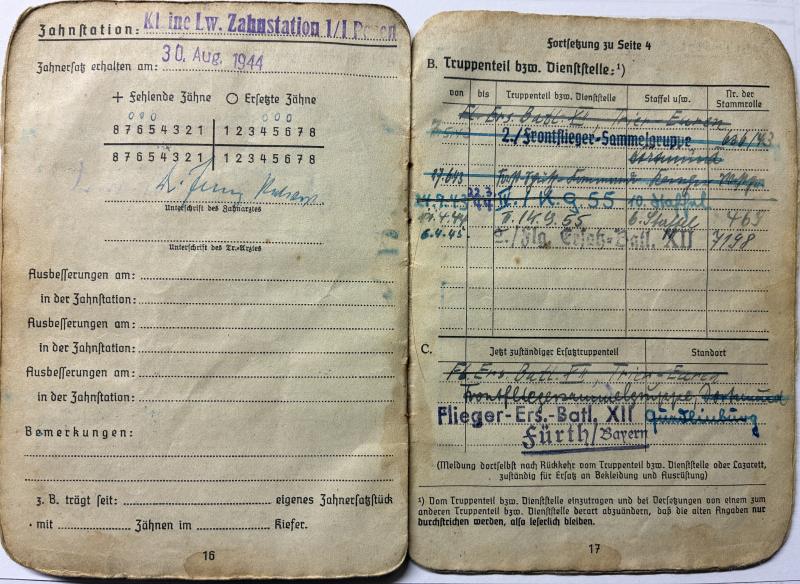 Zahnstation: Kleine Lw. Zahnstation 1/I Posen
Zahnersatz erhalten am: 30. Aug. 1944
+ Fehlende Zähne ○ Ersetzte Zähne
8 7 6 5 4 3 2 1 1 2 3 4 5 6 7 8
8 7 6 5 4 3 2 1 1 2 3 4 5 6 7 8
Unterschrift des Zahnarztes
Unterschrift des Tr.-Arztes
Ausbesserungen am:
in der Zahnstation:
Ausbesserungen am:
in der Zahnstation:
Ausbesserungen am:
in der Zahnstation:
Bemerkungen:
z. B. trägt seit: eigenes Zahnersatzstück
mit Zähnen im Kiefer.
16
Fortsetzung zu Seite 4
B. Truppenteil bzw. Dienststelle:¹)
von bis Truppenteil bzw. Dienststelle Staffel usw. Nr. der Stammrolle
Fl. Ers. Batl. XII, Trier-Euren
2./Frontflieger-Sammelgruppe 636/43
Dortmund
IV./K.G. 55 10. Staffel
II./K.G. 55 6. Staffel 463
6.4.45. 2./Flg. Ersatz-Batl. XII 7198
C. Jetzt zuständiger Ersatztruppenteil Standort
Fl. Ers. Batl. XII, Trier-Euren
Frontfliegersammelgruppe, Dortmund
Flieger-Ers.-Batl. XII Quedlinburg
Fürth/Bayern
(Meldung dortselbst nach Rückkehr vom Truppenteil bzw. Dienststelle oder Lazarett,
zuständig für Ersatz an Bekleidung und Ausrüstung)
¹) Vom Truppenteil bzw. Dienststelle einzutragen und bei Versetzungen von einem zum
anderen Truppenteil bzw. Dienststelle derart abzuändern, daß die alten Angaben nur
durchstrichen werden, also leserlich bleiben.
17